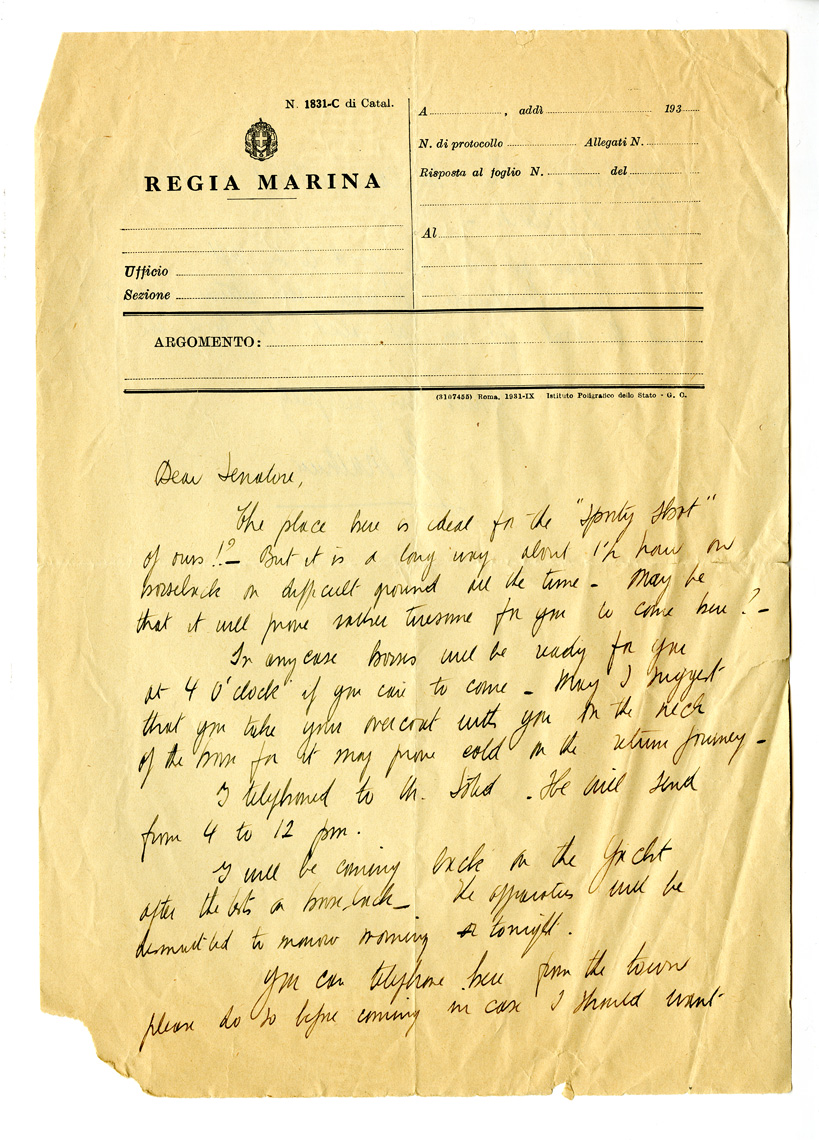 N. 1831-C di Catal.
REGIA MARINA
Ufficio
Sezione
A , addì 193
N. di protocollo Allegati N.
Risposta al foglio N. del
Al
ARGOMENTO:
(3107455) Roma, 1931-IX Istituto Poligrafico dello Stato - G. C.
Dear Senatore,
The place here is ideal for the "Sporty Shot"
of ours!?— But it is a long way about 1½ hour on
horseback on difficult ground all the time — May be
that it will prove rather tiresome for you to come here?—
In any case horses will be ready for you
at 4 O'clock if you care to come — May I suggest
that you take your overcoat with you on the neck
of the horse for it may prove cold on the return journey —
I telephoned to Mr. . He will send
from 4 to 12 pm.
I will be coming back on the Yacht
after the tests on horseback — The apparatus will be
dismantled to morrow morning or tonight.
You can telephone here from the town
please do so before coming in case I should want